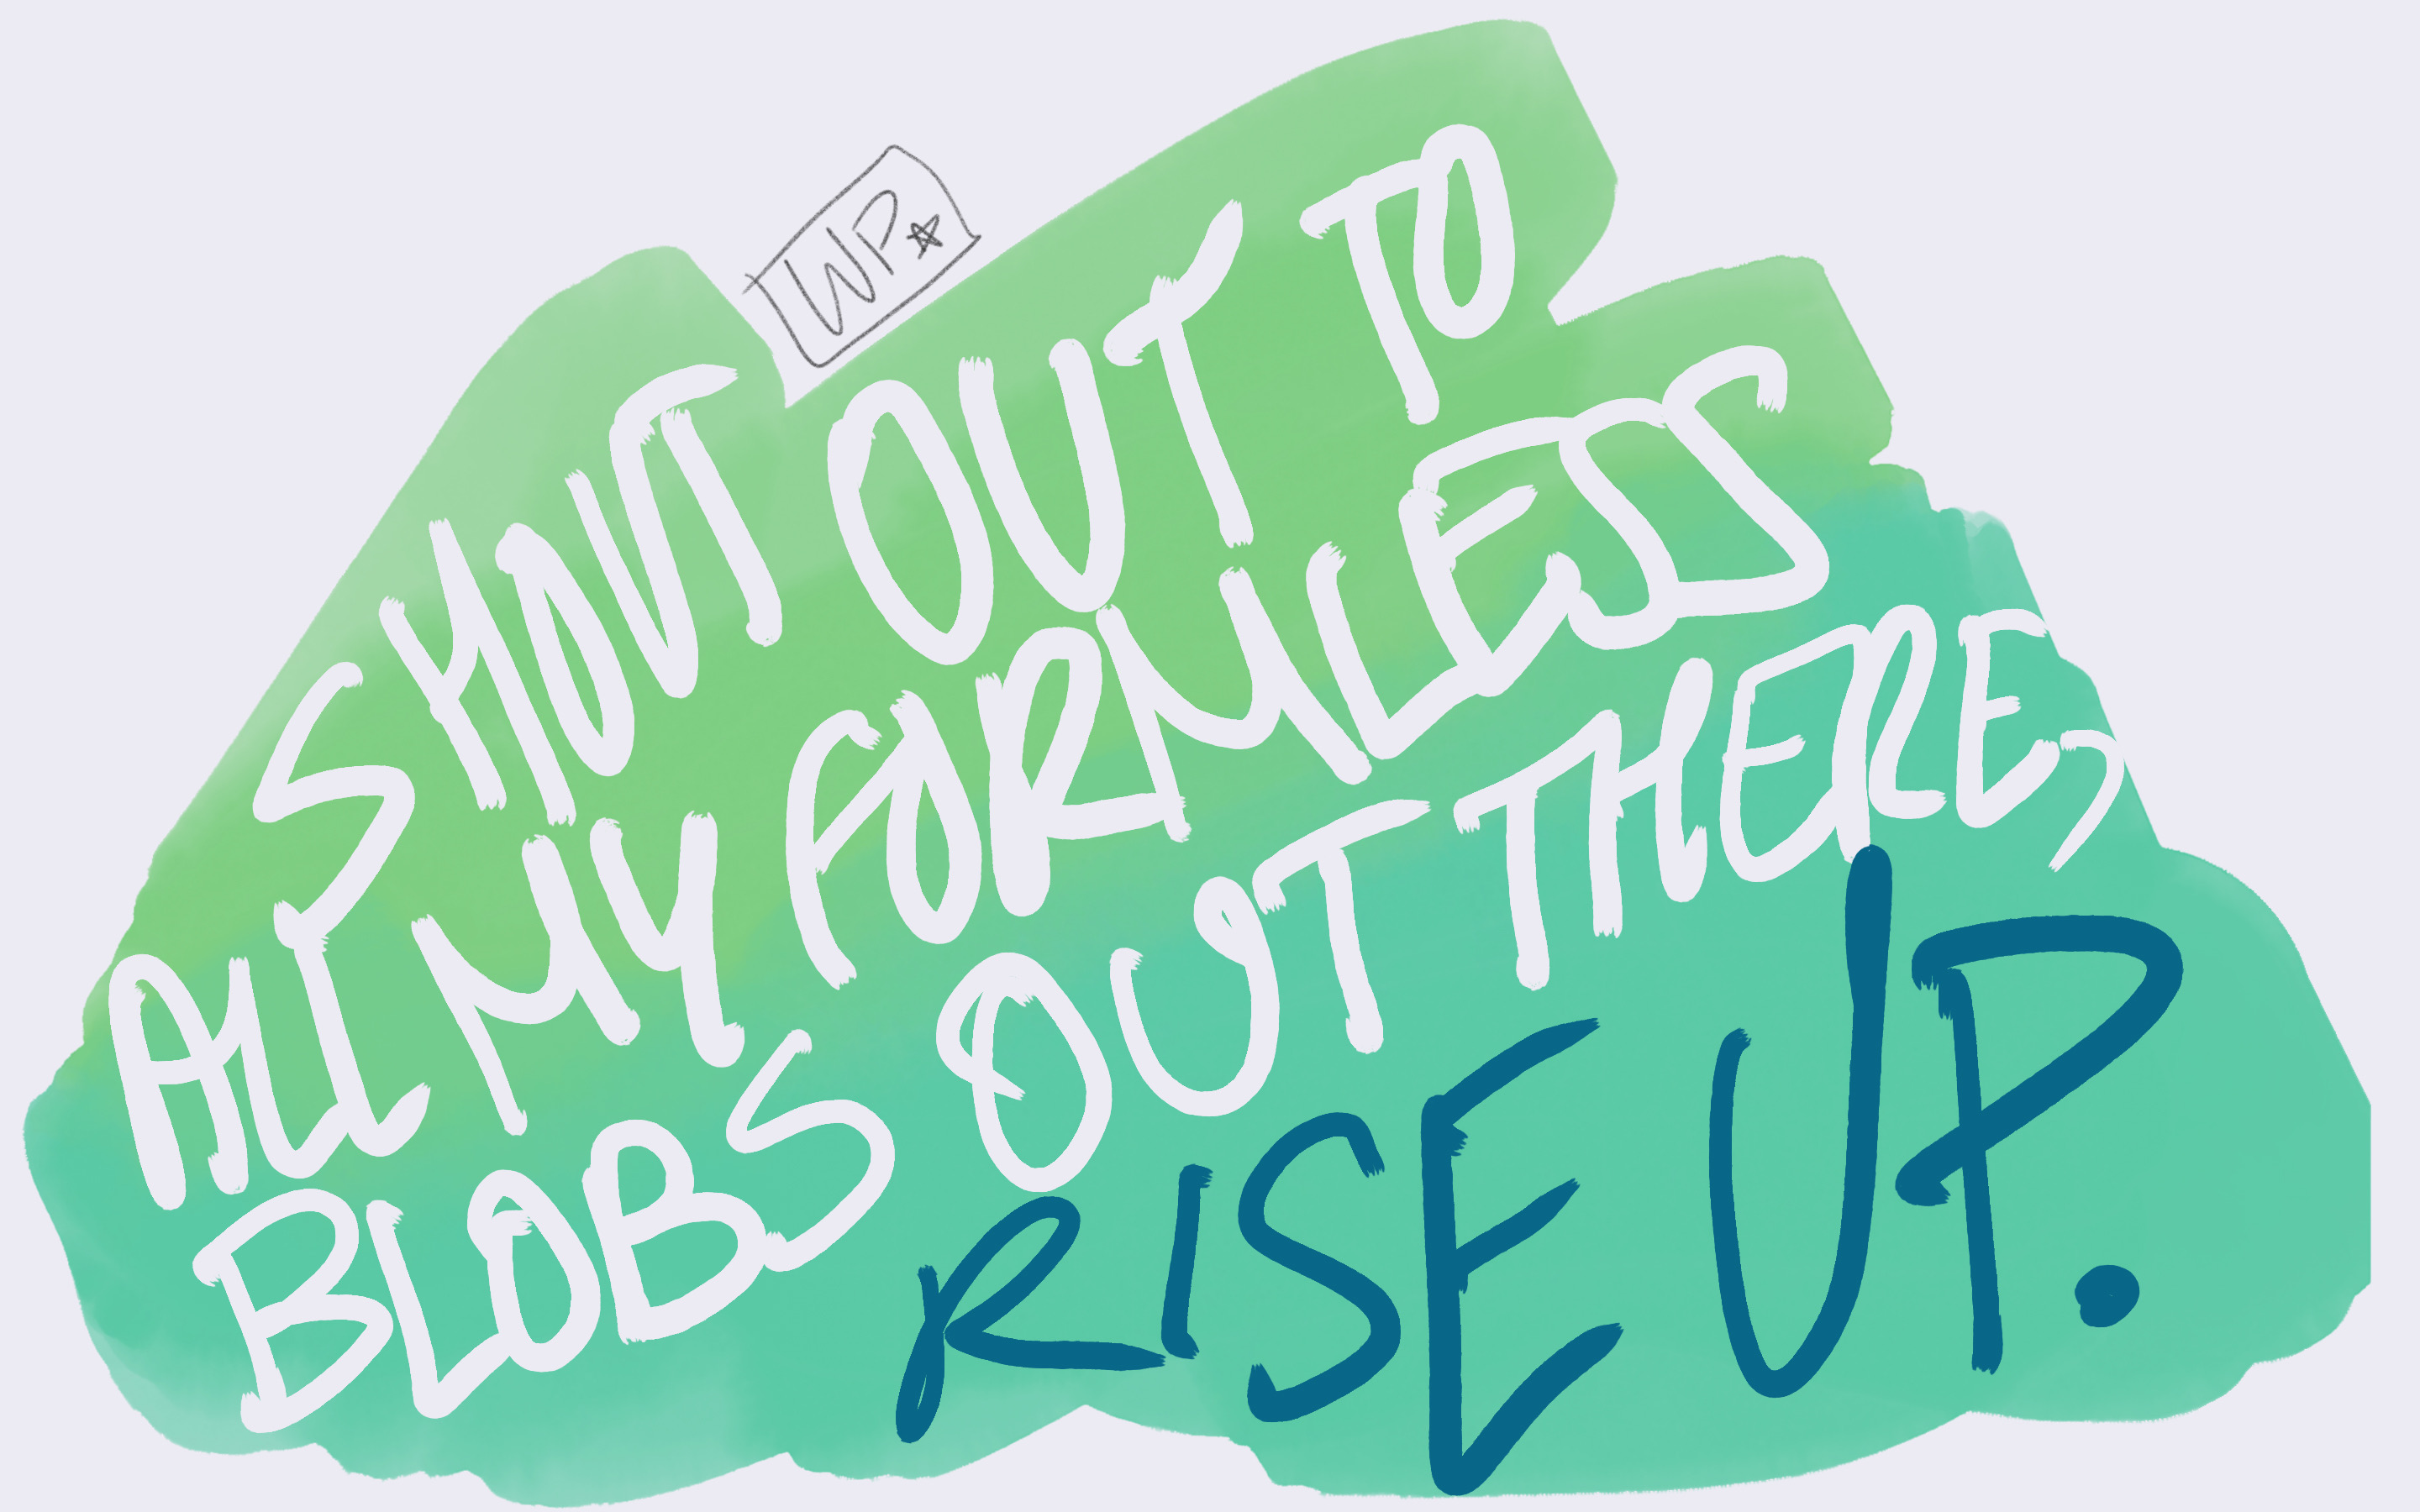 WP
SHOUT OUT TO
ALL MY FORMLESS
BLOBS OUT THERE,
RISE UP.